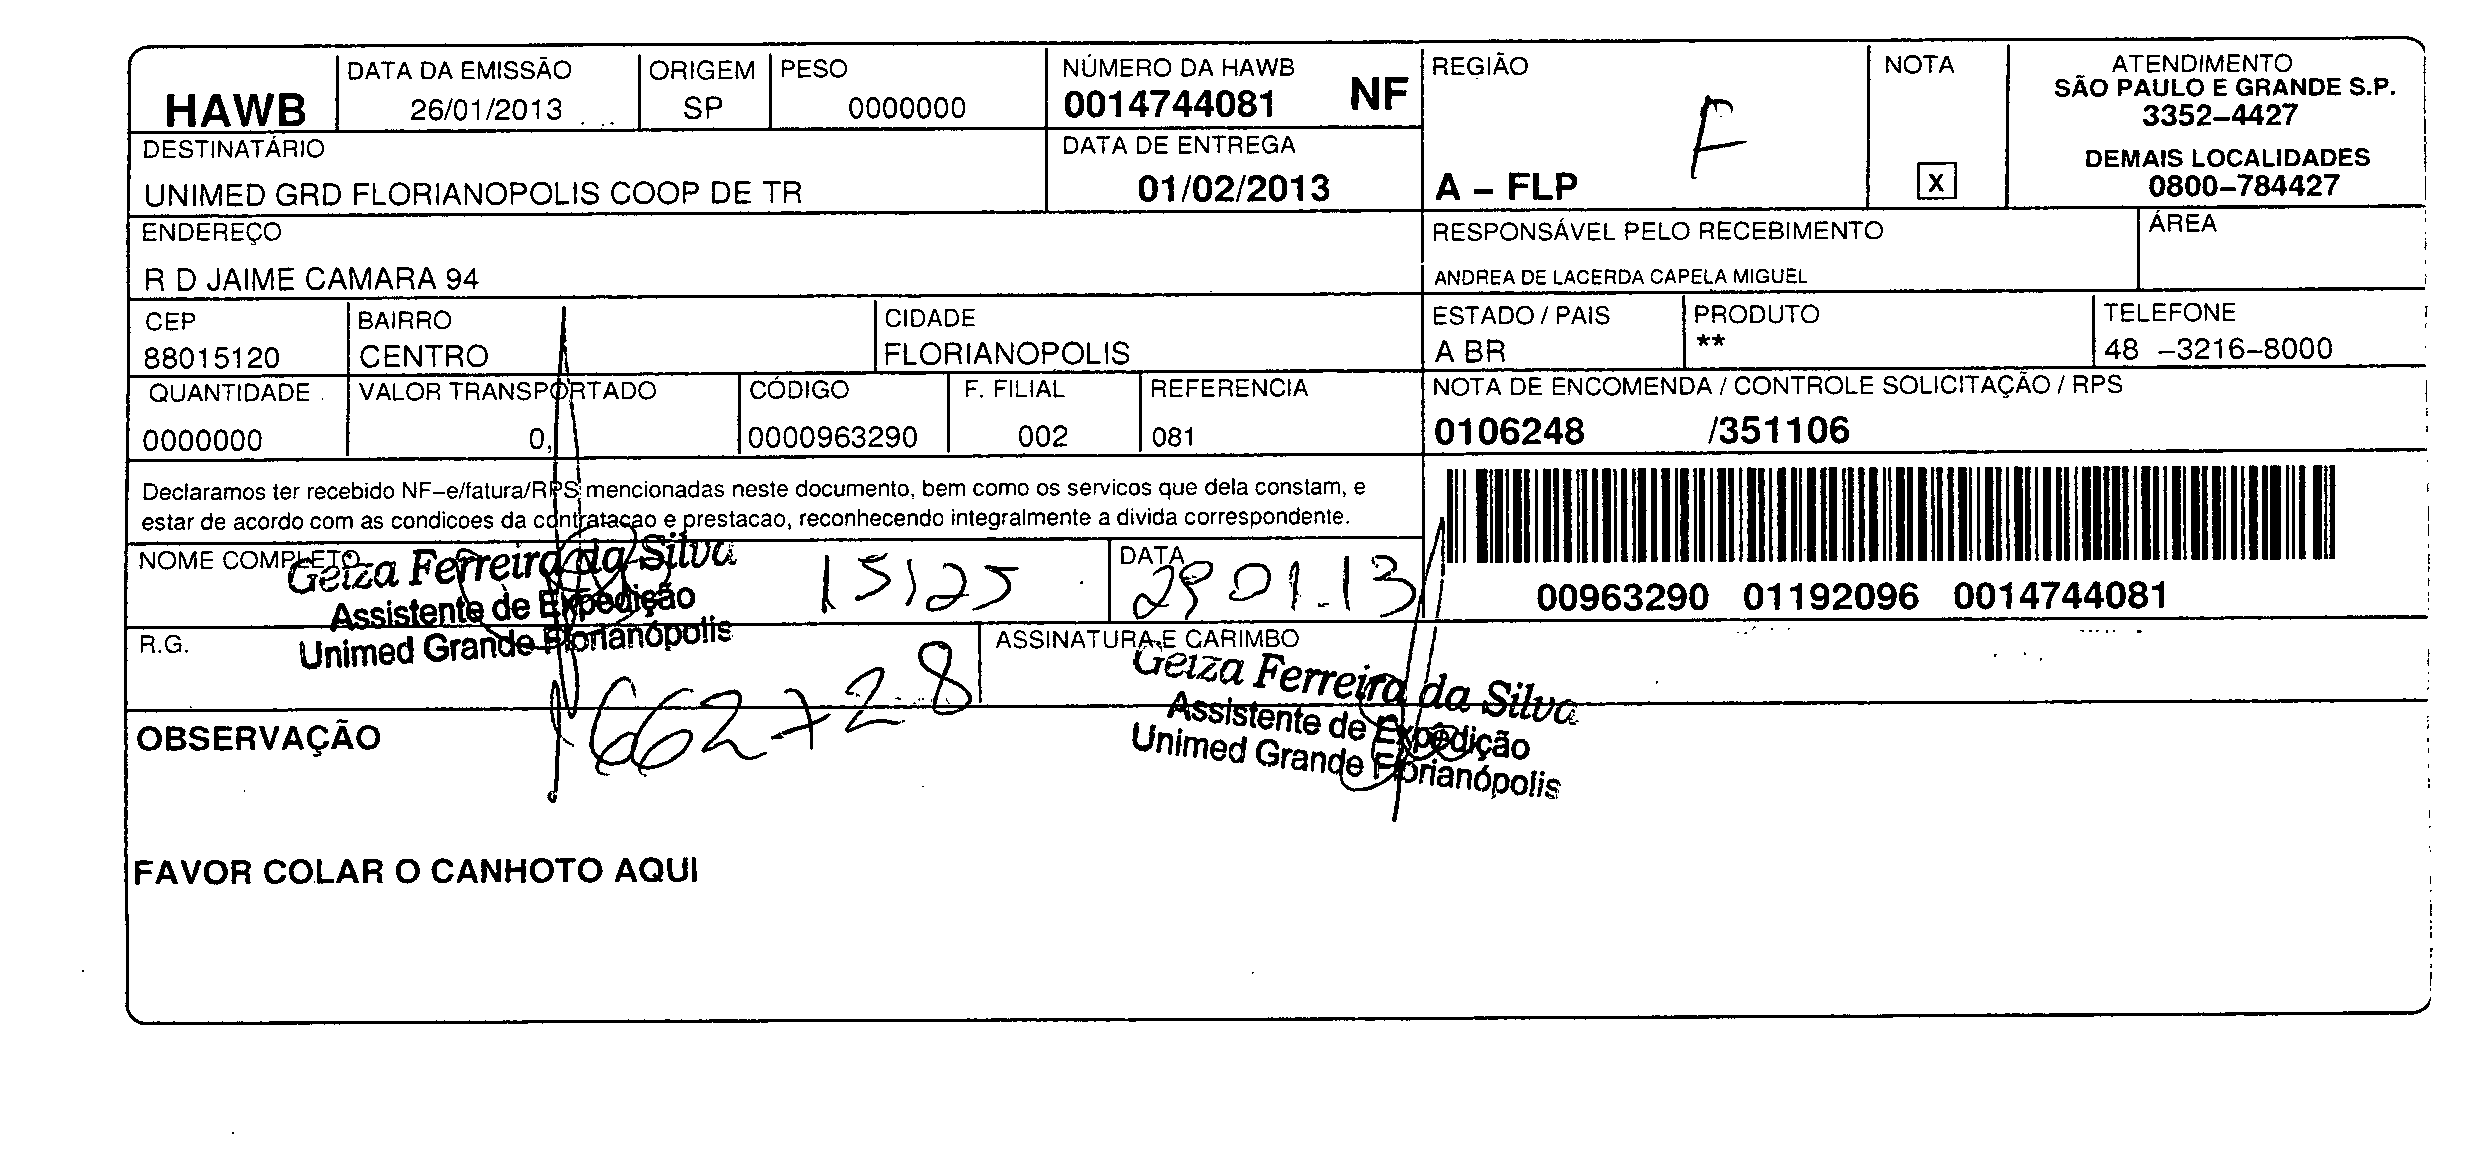 HAWB
DATA DA EMISSÃO
26/01/2013
ORIGEM
SP
PESO
0000000
NÚMERO DA HAWB
0014744081 NF
REGIÃO
A – FLP
F
NOTA
X
ATENDIMENTO
SÃO PAULO E GRANDE S.P.
3352–4427
DEMAIS LOCALIDADES
0800–784427
DESTINATÁRIO
UNIMED GRD FLORIANOPOLIS COOP DE TR
DATA DE ENTREGA
01/02/2013
ENDEREÇO
R D JAIME CAMARA 94
RESPONSÁVEL PELO RECEBIMENTO
ANDREA DE LACERDA CAPELA MIGUEL
ÁREA
CEP
88015120
BAIRRO
CENTRO
CIDADE
FLORIANOPOLIS
ESTADO / PAIS
A BR
PRODUTO
**
TELEFONE
48 –3216–8000
QUANTIDADE
0000000
VALOR TRANSPORTADO
0,
CÓDIGO
0000963290
F. FILIAL
002
REFERENCIA
081
NOTA DE ENCOMENDA / CONTROLE SOLICITAÇÃO / RPS
0106248 /351106
Declaramos ter recebido NF–e/fatura/RPS mencionadas neste documento, bem como os servicos que dela constam, e
estar de acordo com as condicoes da contratacao e prestacao, reconhecendo integralmente a divida correspondente.
00963290 01192096 0014744081
NOME COMPLETO
Geiza Ferreira da Silva
Assistente de Expedição
Unimed Grande Florianópolis
15:25
DATA
29.01.13
R.G.
ASSINATURA E CARIMBO
Geiza Ferreira da Silva
Assistente de Expedição
Unimed Grande Florianópolis
OBSERVAÇÃO
FAVOR COLAR O CANHOTO AQUI